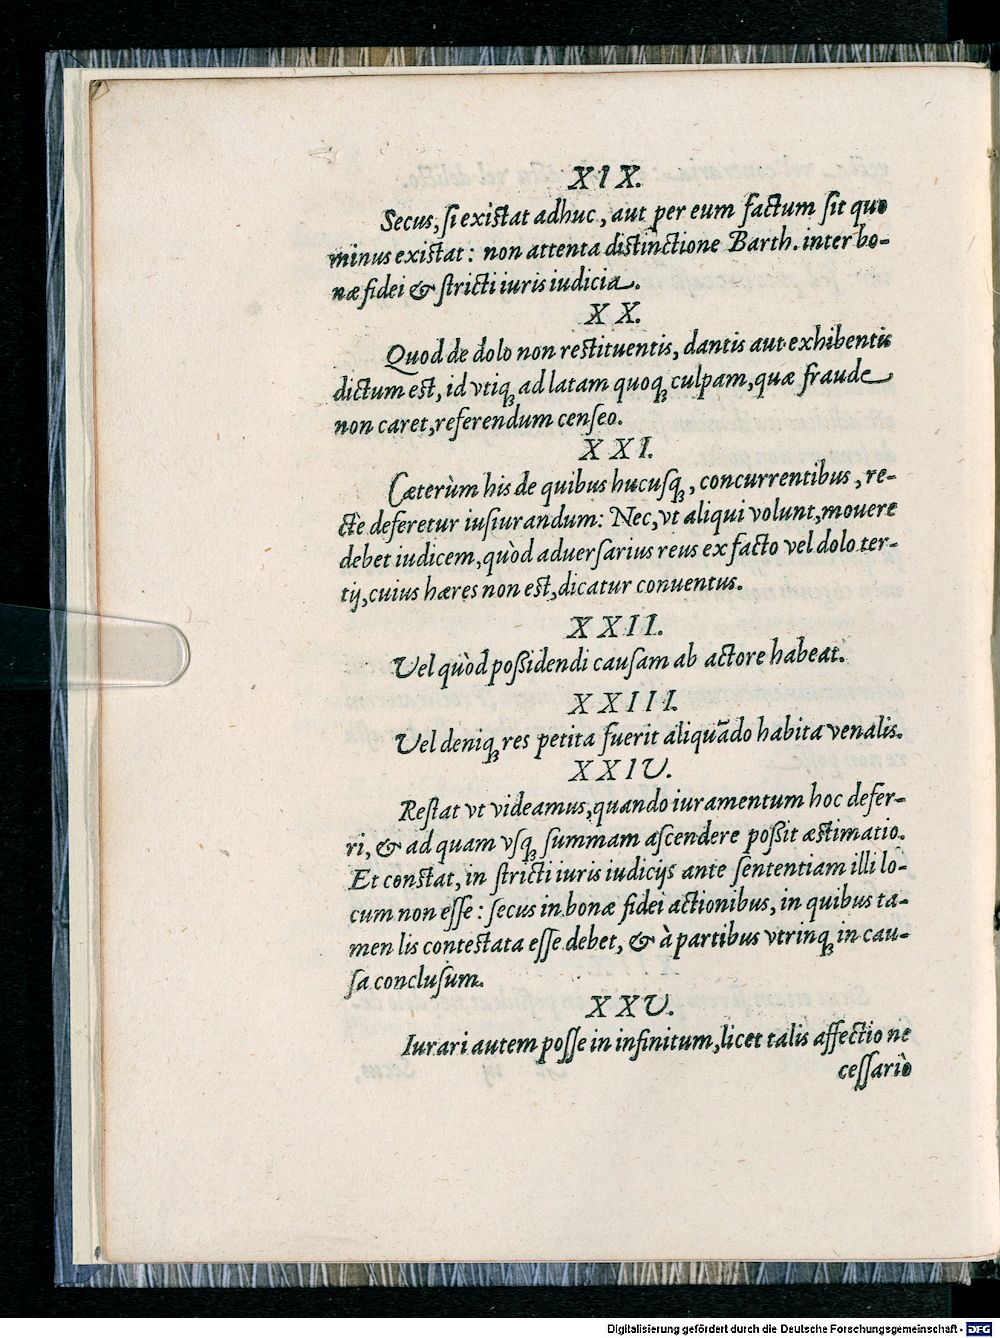 XIX.
Secus, si existat adhuc, aut per eum factum sit quo
minus existat: non attenta distinctione Barth. inter bo-
næ fidei & stricti iuris iudicia.
XX.
Quod de dolo non restituentis, dantis aut exhibentis
dictum est, id vtiq; ad latam quoq; culpam, quæ fraude
non caret, referendum censeo.
XXI.
Cæterùm his de quibus hucusq;, concurrentibus, re-
ctè deferetur iusiurandum: Nec, vt aliqui volunt, mouere
debet iudicem, quòd aduersarius reus ex facto vel dolo ter-
tij, cuius hæres non est, dicatur conuentus.
XXII.
Vel quòd possidendi causam ab actore habeat.
XXIII.
Vel deniq; res petita fuerit aliquãdo habita venalis.
XXIV.
Restat vt videamus, quando iuramentum hoc defer-
ri, & ad quam vsq; summam ascendere possit æstimatio.
Et constat, in stricti iuris iudicijs ante sententiam illi lo-
cum non esse: secus in bonæ fidei actionibus, in quibus ta-
men lis contestata esse debet, & à partibus vtrinq; in cau-
sa conclusum.
XXV.
Iurari autem posse in infinitum, licet talis affectio ne
cessariò
Digitalisierung gefördert durch die Deutsche Forschungsgemeinschaft - DFG